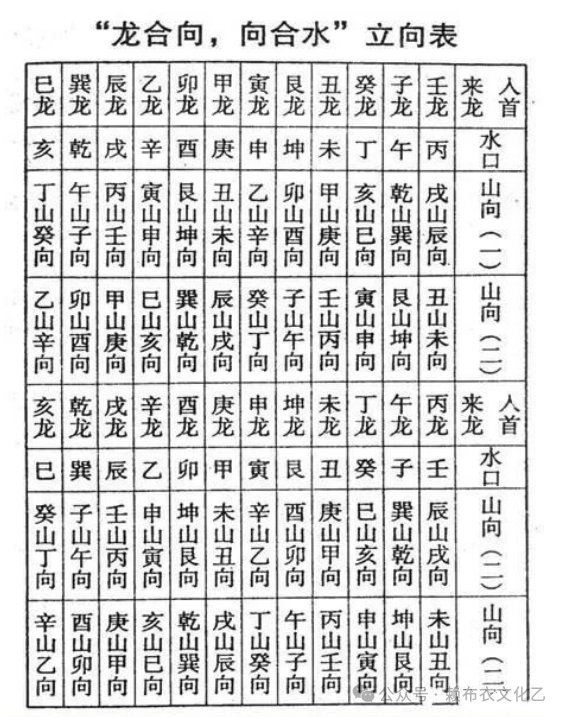 “龙合向，向合水”立向表
人首来龙 壬龙 子龙 癸龙 丑龙 艮龙 寅龙 甲龙 卯龙 乙龙 辰龙 巽龙 巳龙
水口 丙 午 丁 未 坤 申 庚 酉 辛 戌 乾 亥
山向（一） 戌山辰向 乾山巽向 亥山巳向 甲山庚向 卯山酉向 乙山辛向 丑山未向 艮山坤向 寅山申向 丙山壬向 午山子向 丁山癸向
山向（二） 丑山未向 艮山坤向 寅山申向 壬山丙向 子山午向 癸山丁向 辰山戌向 巽山乾向 巳山亥向 甲山庚向 卯山酉向 乙山辛向
人首来龙 丙龙 午龙 丁龙 未龙 坤龙 申龙 庚龙 酉龙 辛龙 戌龙 乾龙 亥龙
水口 壬 子 癸 丑 艮 寅 甲 卯 乙 辰 巽 巳
山向（二） 辰山戌向 巽山乾向 巳山亥向 庚山甲向 酉山卯向 辛山乙向 未山丑向 坤山艮向 申山寅向 壬山丙向 子山午向 癸山丁向
山向（二 未山丑向 坤山艮向 申山寅向 丙山壬向 午山子向 丁山癸向 戌山辰向 乾山巽向 亥山巳向 庚山甲向 酉山卯向 辛山乙向
公众号·赖布衣文化乙